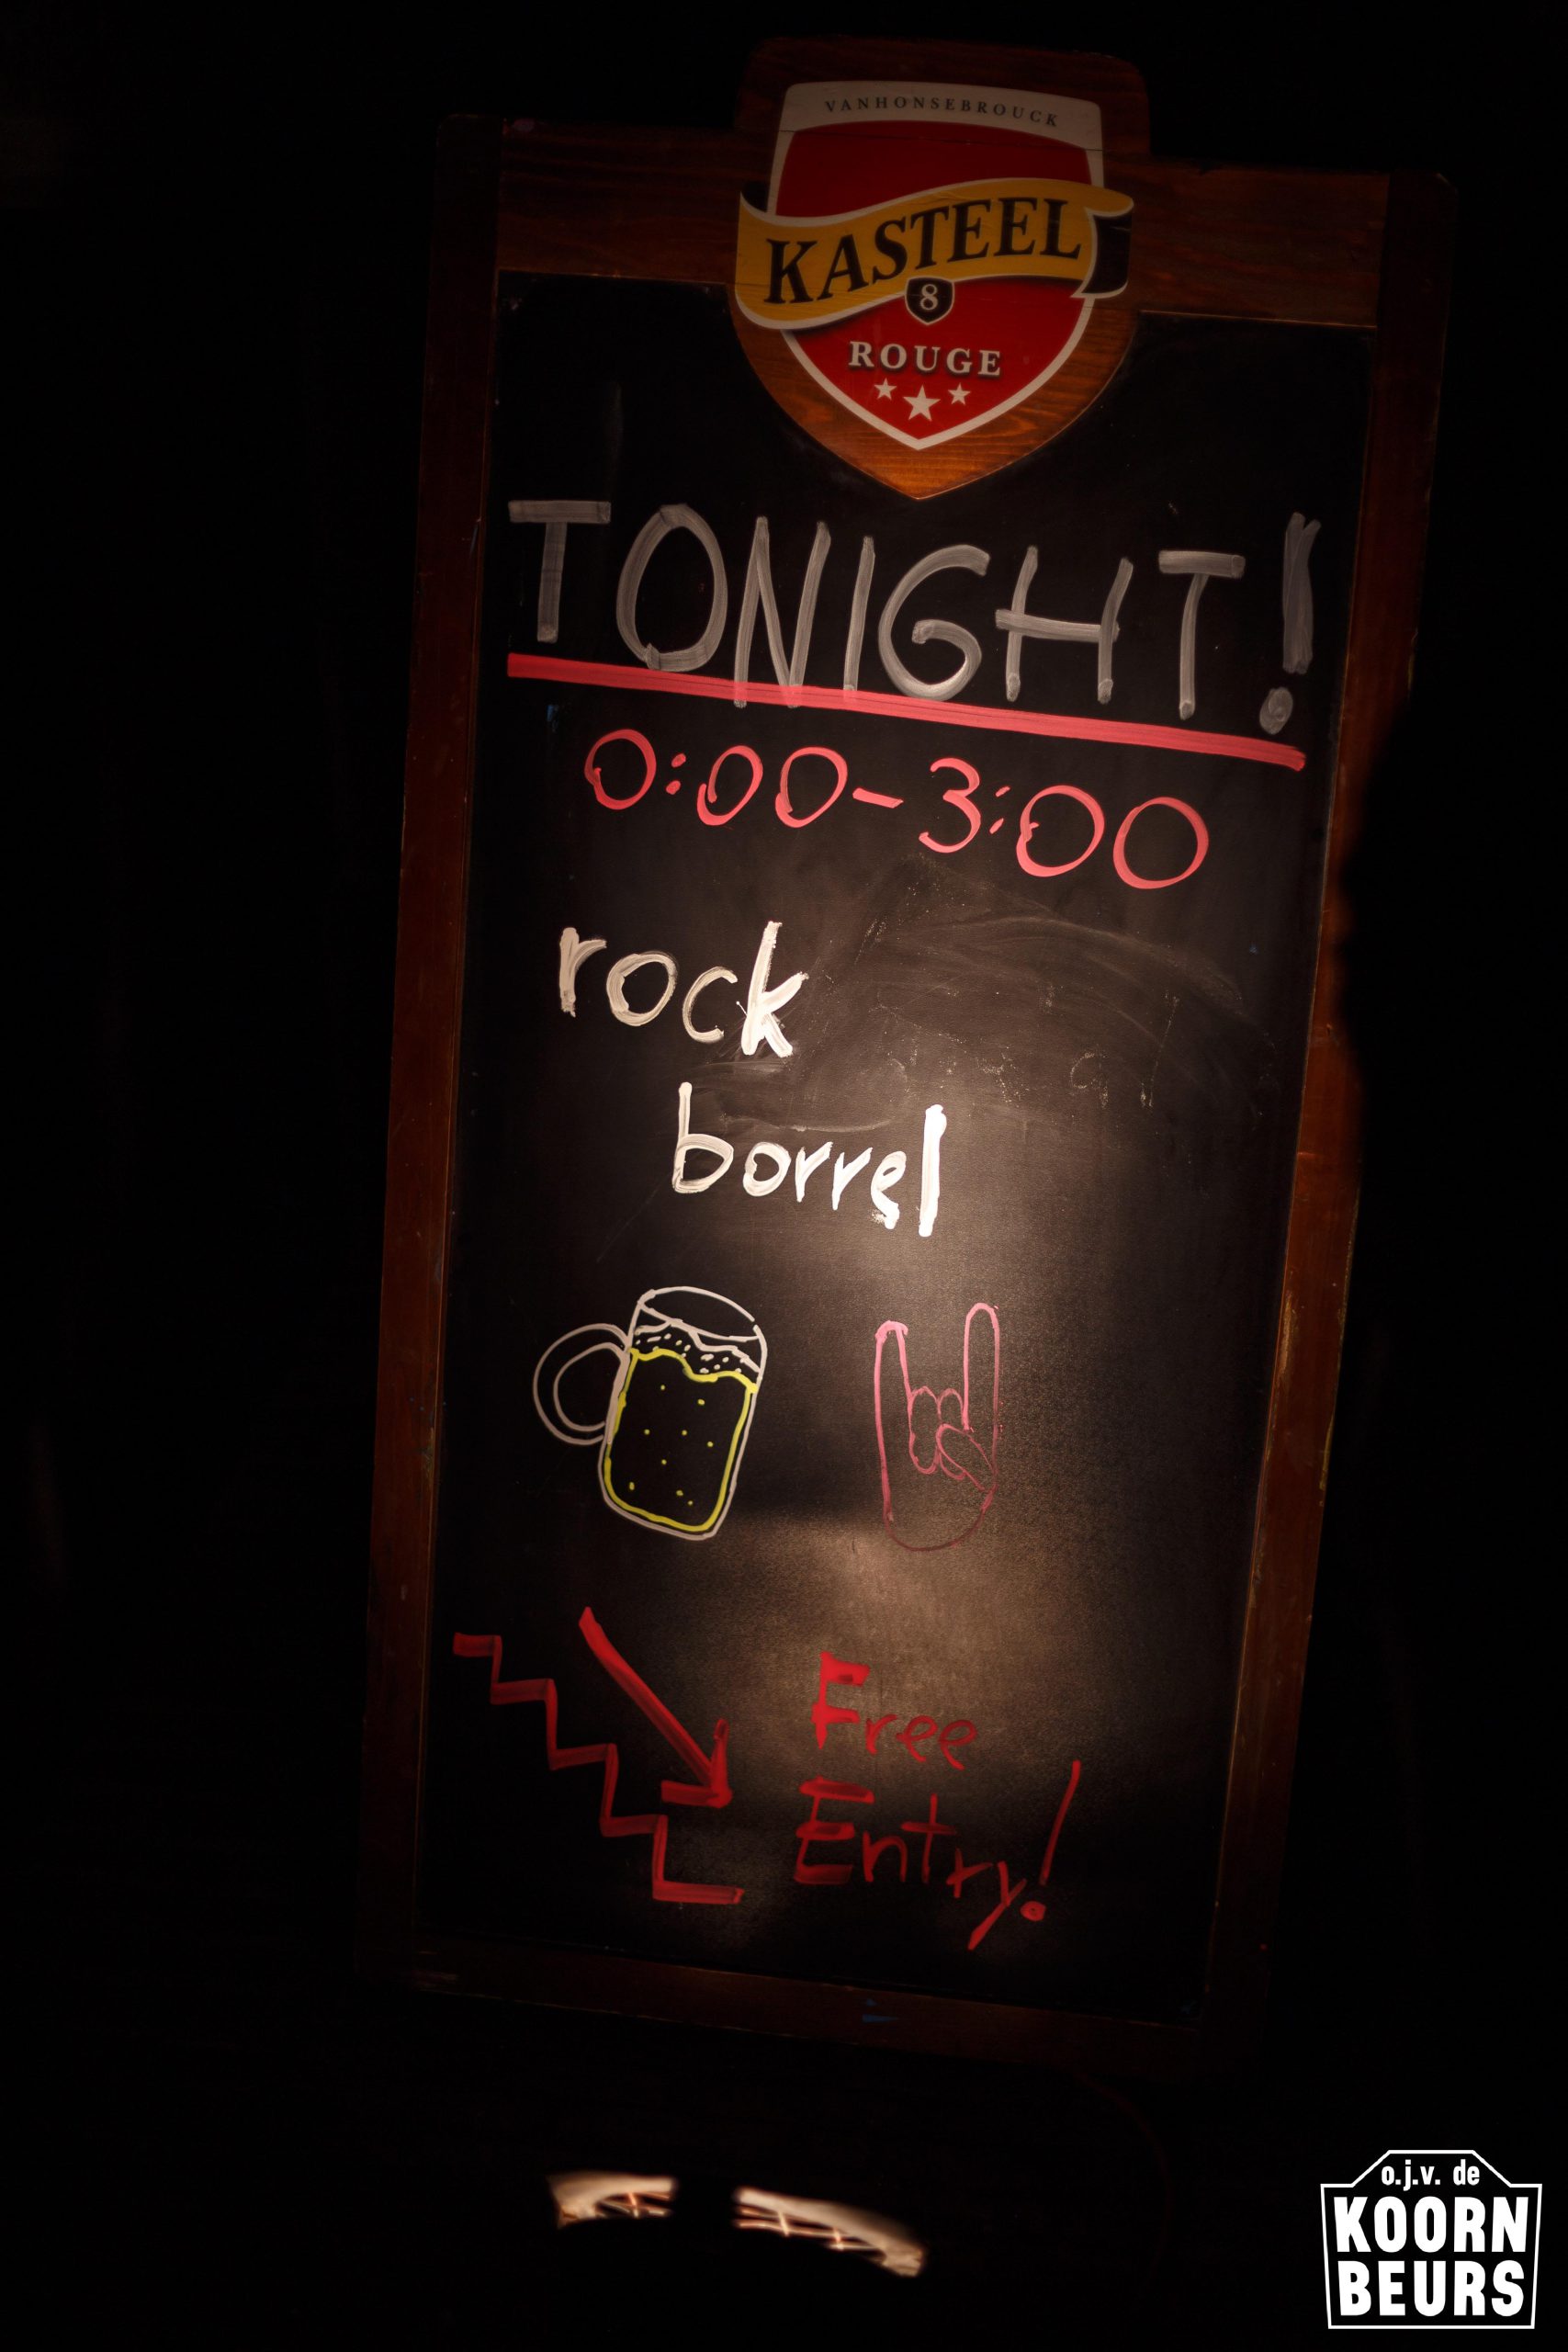 VANHONSEBROUCK
KASTEEL
8
ROUGE
TONIGHT!
0:00-3:00
rock
borrel
Free
Entry!
o.j.v. de
KOORN
BEURS